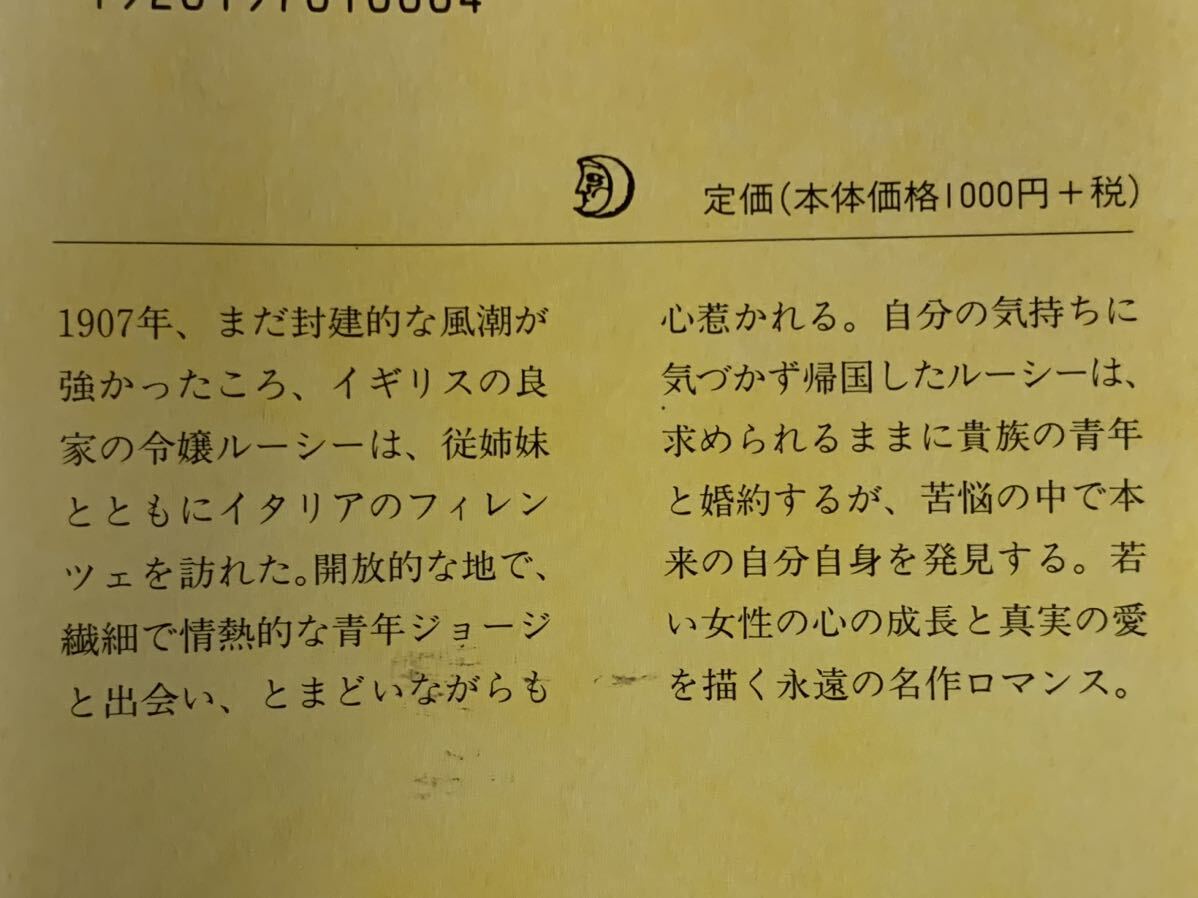 定価(本体価格1000円+税)
1907年、まだ封建的な風潮が
強かったころ、イギリスの良
家の令嬢ルーシーは、従姉妹
とともにイタリアのフィレン
ツェを訪れた。開放的な地で、
繊細で情熱的な青年ジョージ
と出会い、とまどいながらも
心惹かれる。自分の気持ちに
気づかず帰国したルーシーは、
求められるままに貴族の青年
と婚約するが、苦悩の中で本
来の自分自身を発見する。若
い女性の心の成長と真実の愛
を描く永遠の名作ロマンス。